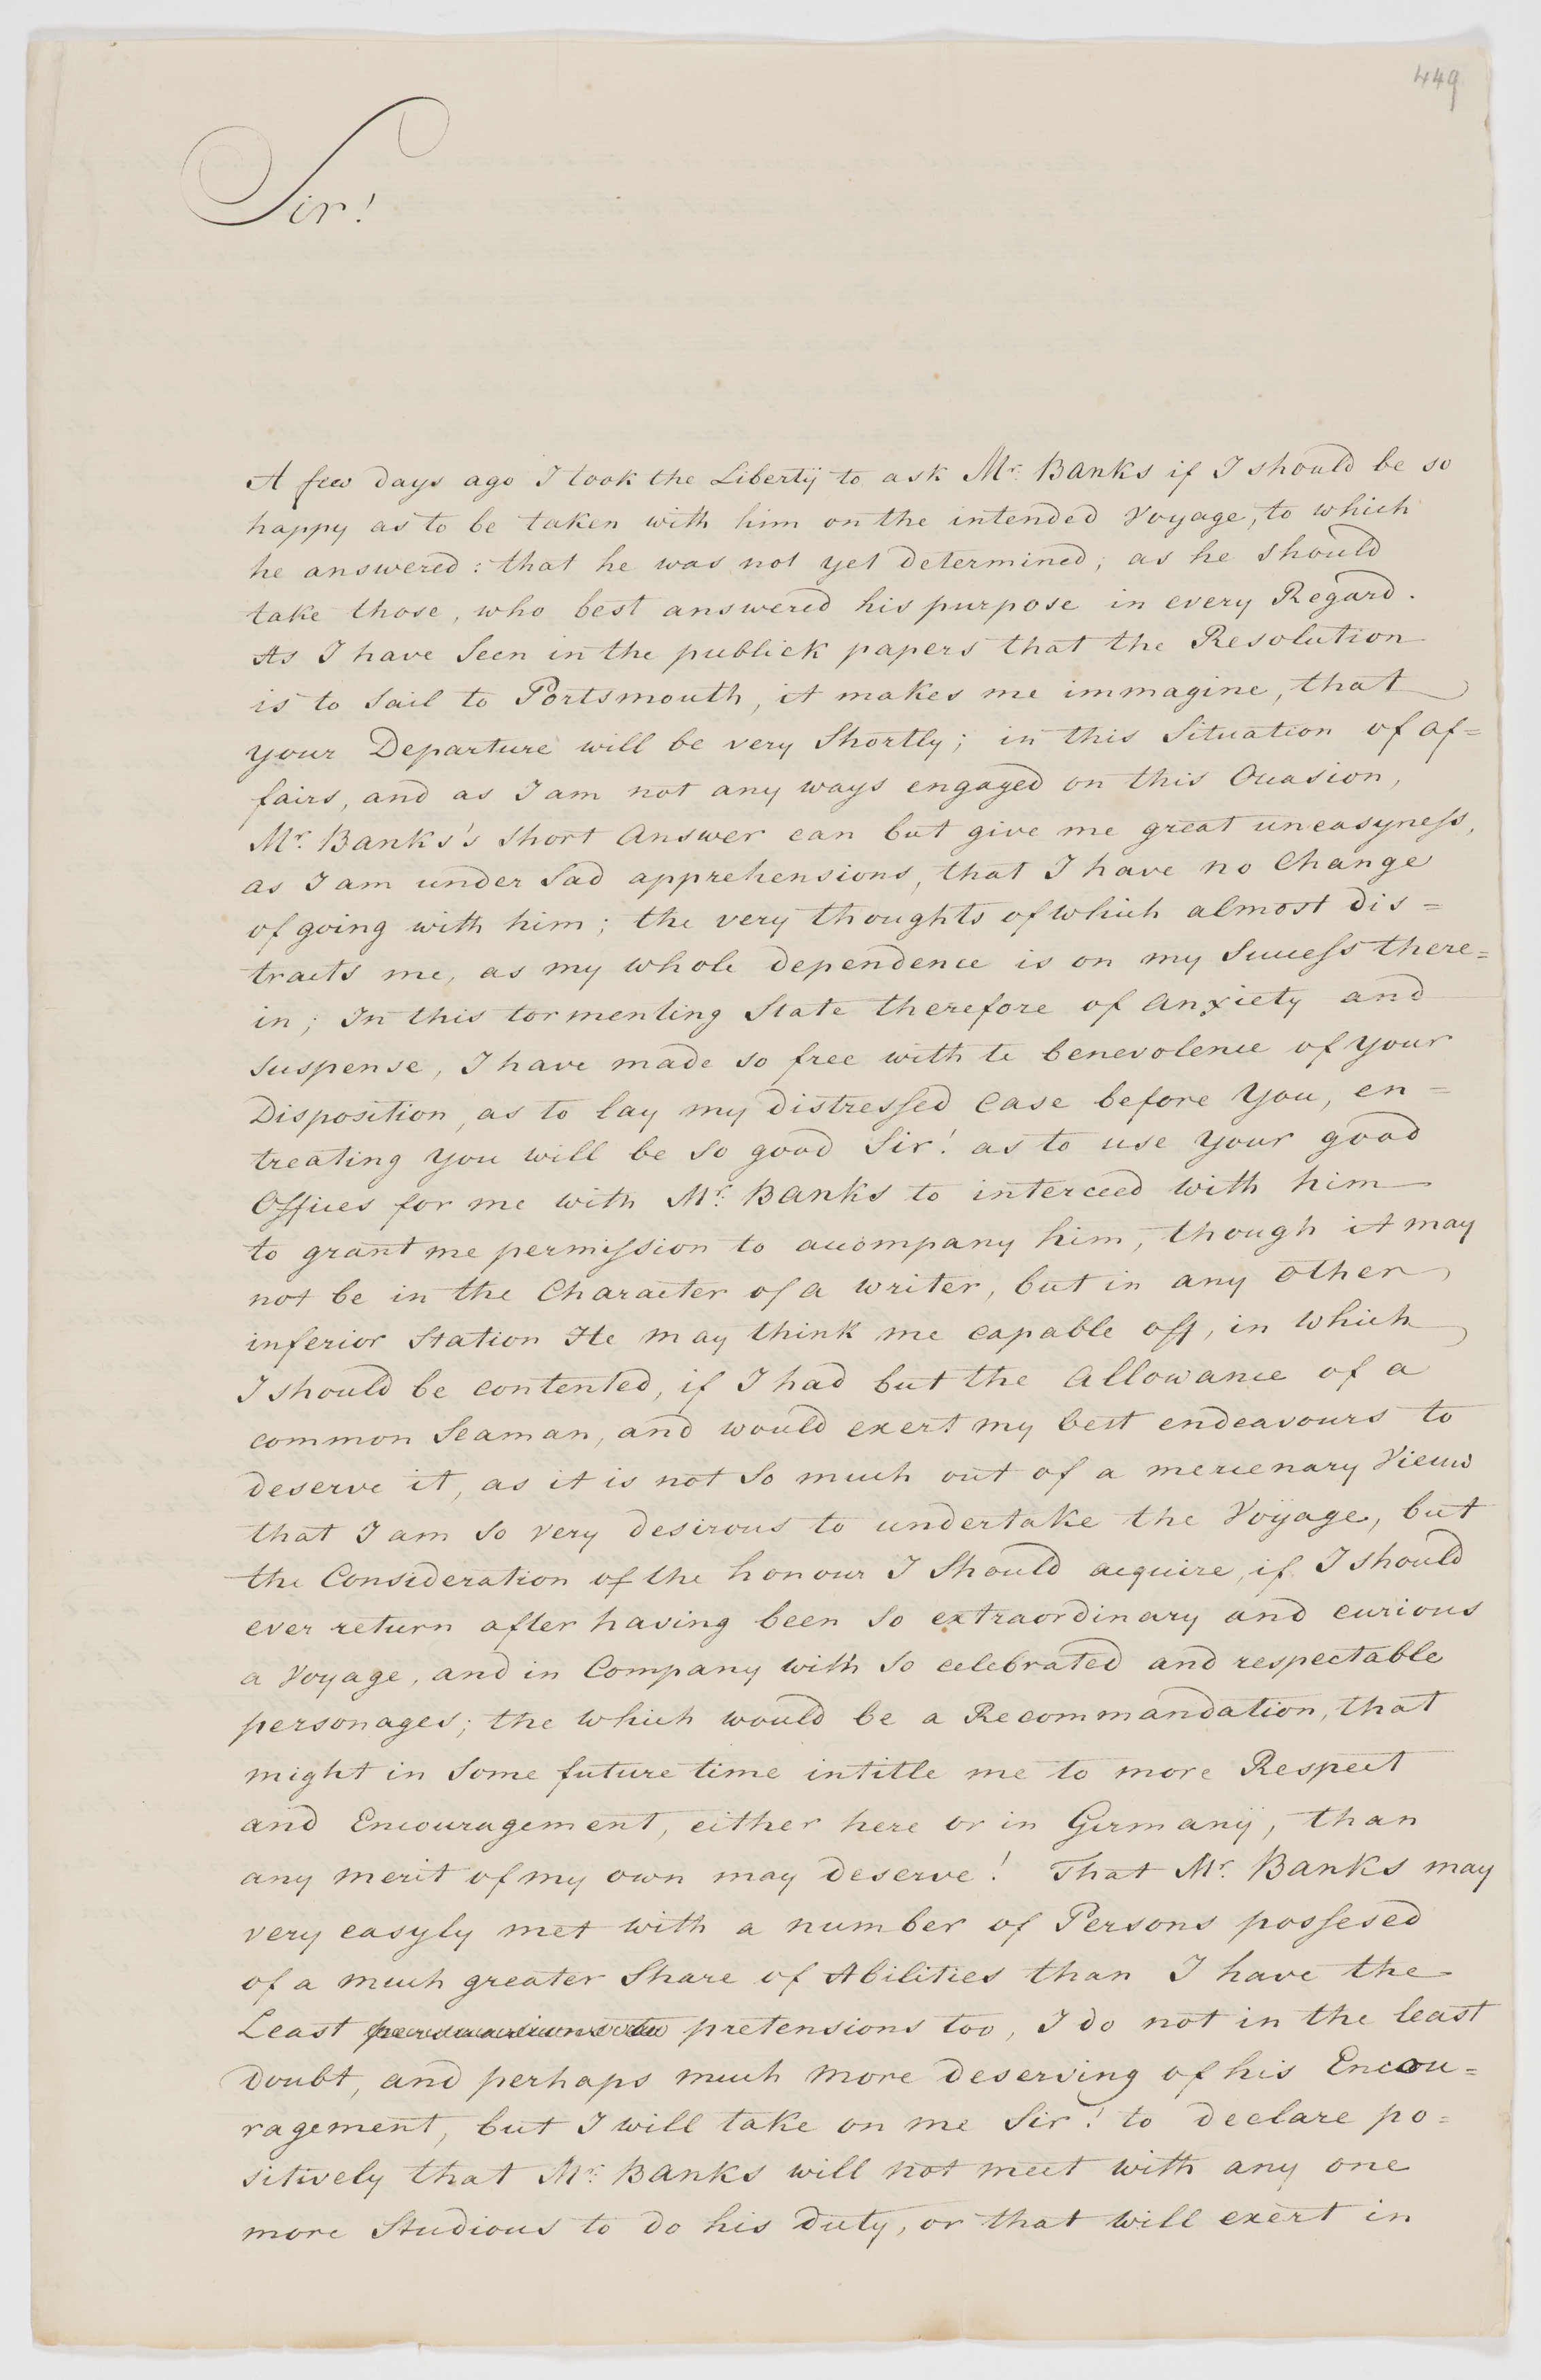 449
Sir!
A few days ago I took the Libertÿ to ask Mr. Banks if I should be so
happy as to be taken with him on the intended Voyage, to which
he answered: that he was not yet determined; as he should
take those, who best answered his purpose in every Regard.
As I have Seen in the publick papers that the Resolution
is to Sail to Portsmouth, it makes me immagine, that
your Departure will be very Shortly; in this Situation of af=
fairs, and as I am not any ways engaged on this Occasion,
Mr. Banks's short Answer can but give me great uneasyness,
as I am under Sad apprehensions, that I have no Change
of going with him; the very thoughts of which almost dis=
tracts me, as my whole dependence is on my Success there=
in; In this tormenting State therefore of Anxiety and
suspense, I have made so free with te benevolence of your
Disposition, as to lay my distressed Case before You, en=
treating you will be So good Sir! as to use your good
Offices for me with Mr. Banks to interceed with him
to grant me permission to accompany him, though it may
not be in the Character of a writer, but in any other
inferior Station He may think me capable off, in which
I should be contented, if I had but the Allowance of a
common Seaman, and would exert my best endeavours to
deserve it, as it is not So much out of a mercenary View
that I am So very desirous to undertake the Voÿage, but
the Consideration of the honour I Should acquire, if I should
ever return after having been So extraordinary and curious
a Voyage, and in Company with So celebrated and respectable
personages; the which would be a Recommandation, that
might in Some future time intitle me to more Respect
and Encouragement, either here or in Germanÿ, than
any merit of my own may deserve! That Mr. Banks may
very easyly met with a number of Persons possesed
of a much greater Share of Abilities than I have the
Least pretensions too, I do not in the least
Doubt, and perhaps much more deserving of his Encou=
ragement, but I will take on me Sir! to declare po=
sitively that Mr. Banks will not meet with any one
more Studious to do his Duty, or that will exert in